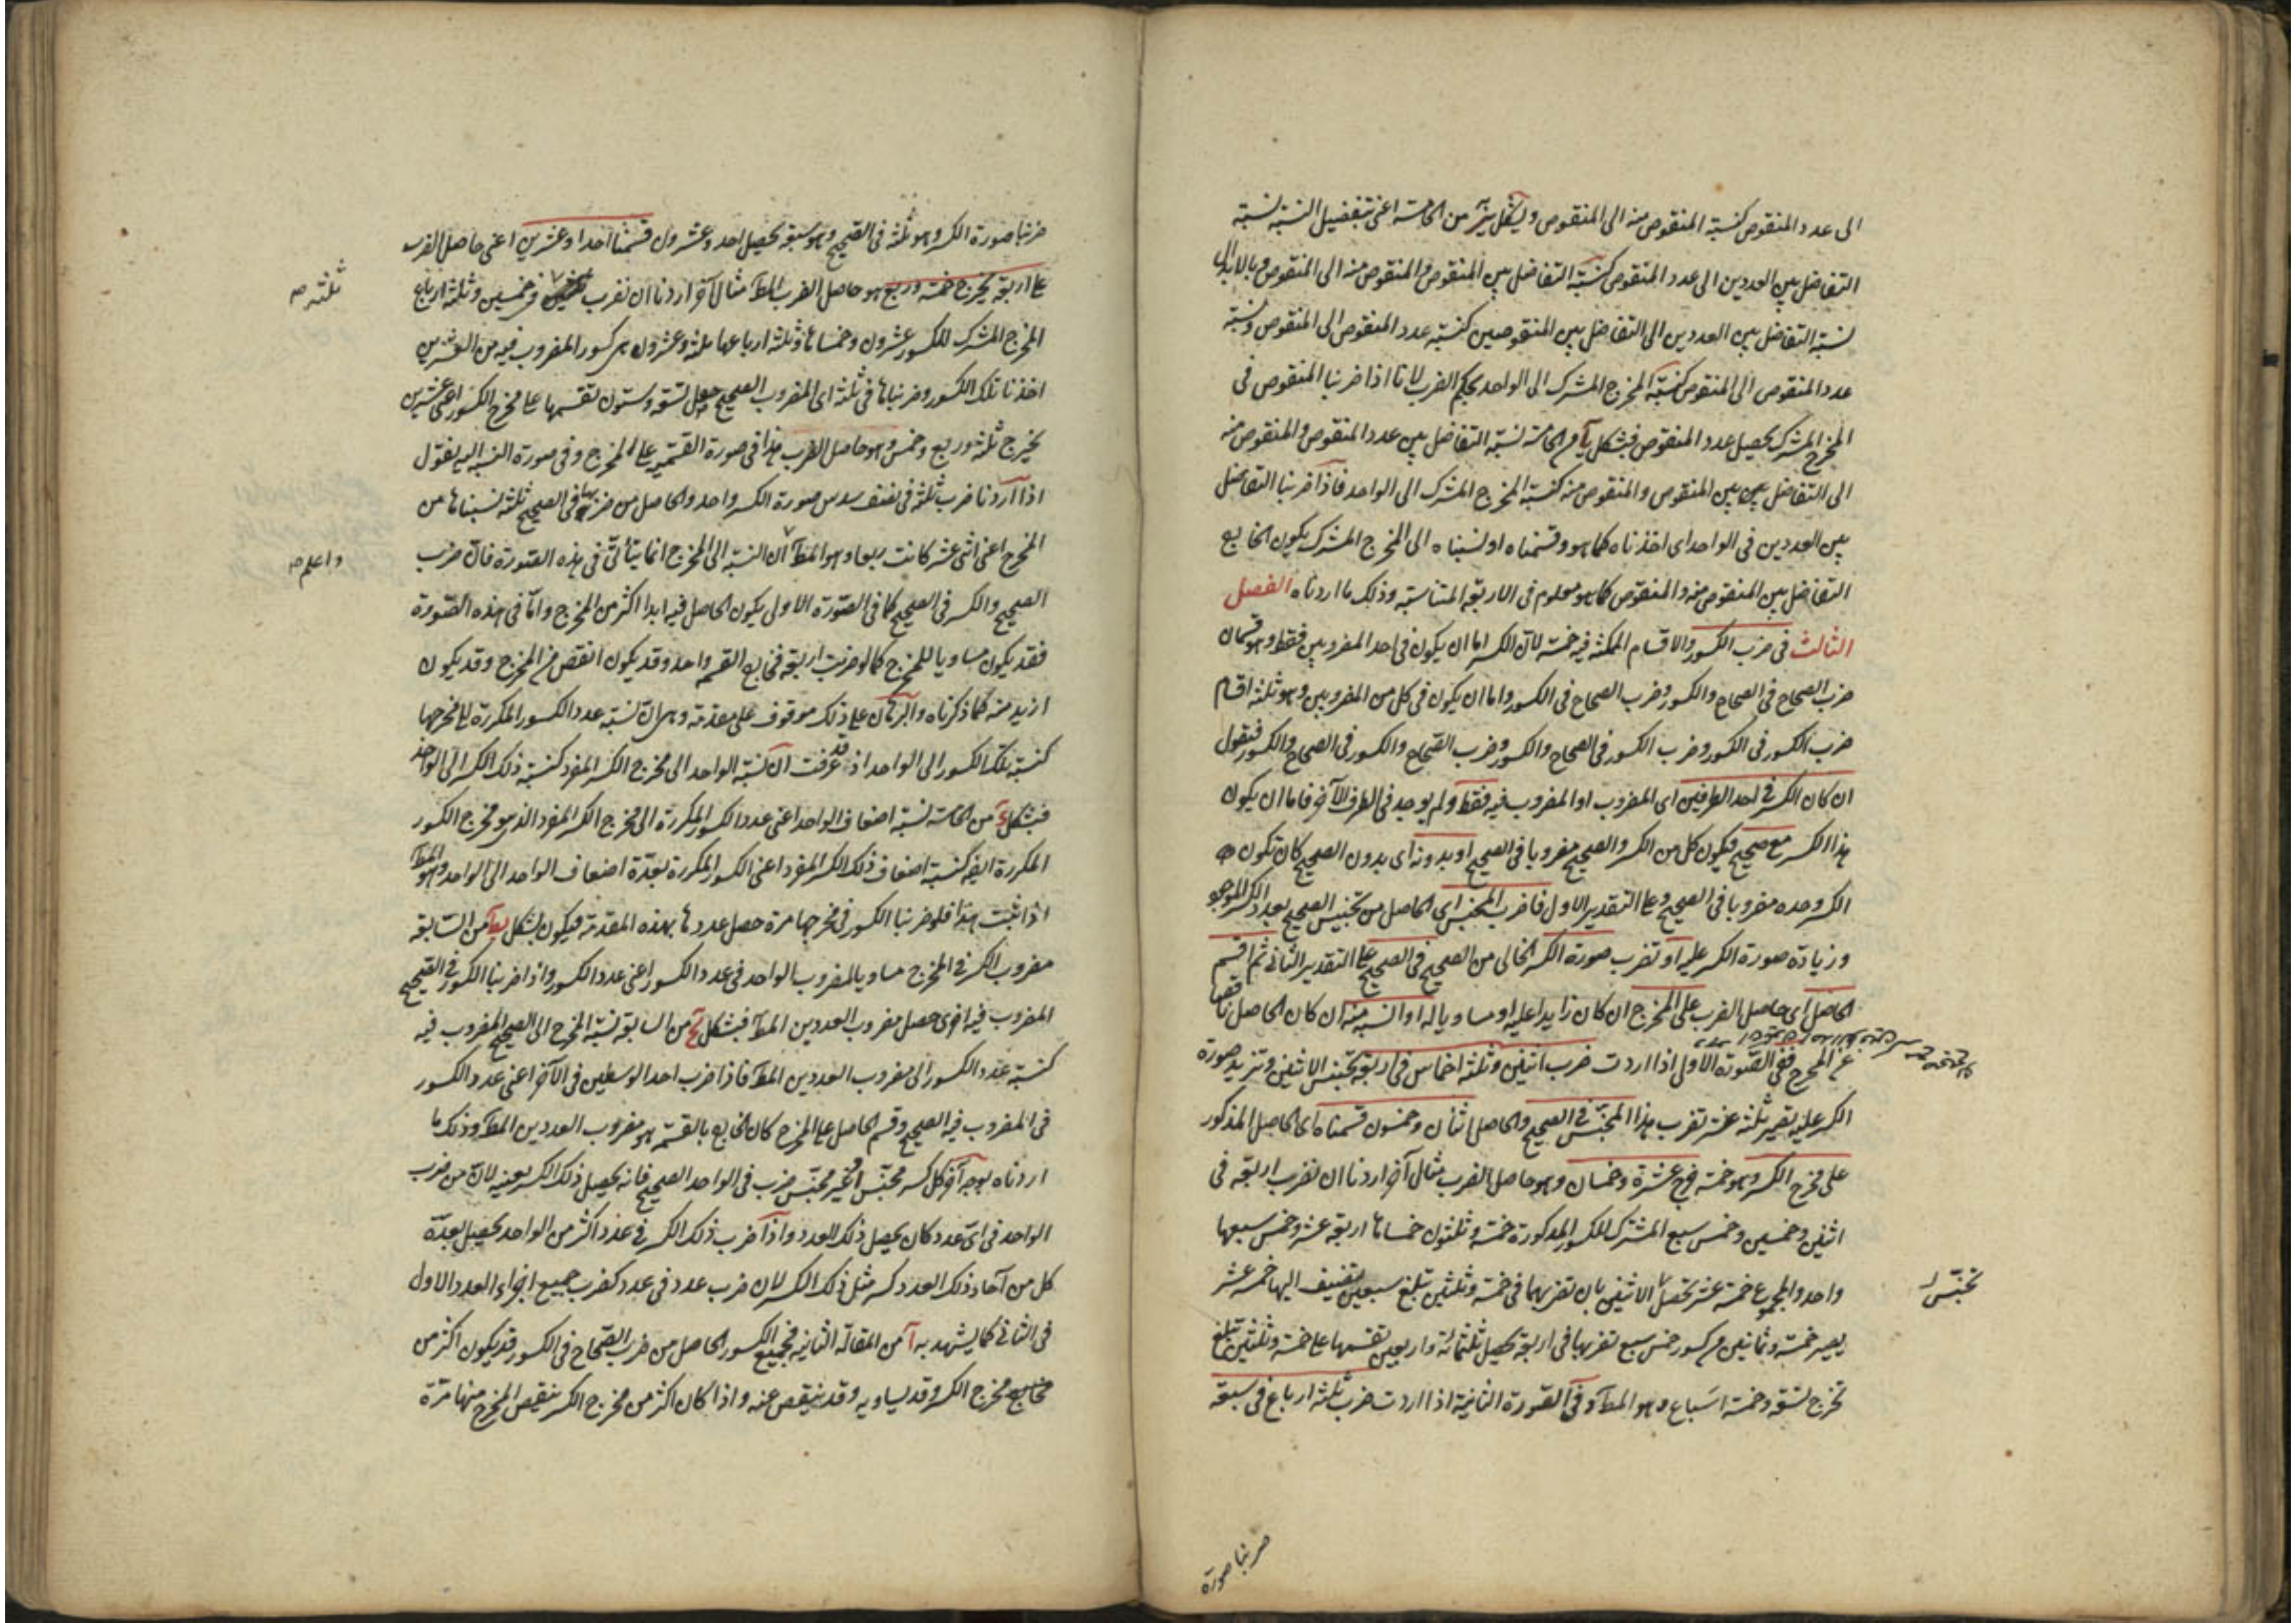 الى عدد المنقوص كنسبة المنقوص منه الى المنقوص وبشكل من الخامسة اعنى بتفضيل النسبة نسبة
التفاضل بين العددين الى عدد المنقوص كنسبة التفاضل بين المنقوص والمنقوص منه الى المنقوص وبالابدال
نسبة التفاضل بين العددين الى التفاضل بين المنقوصين كنسبة عدد المنقوص الى المنقوص ونسبة
عدد المنقوص الى المنقوص كنسبة المخرج المشترك الى الواحد بحكم الضرب لانا اذا ضربنا المنقوص فى
المخرج المشترك يحصل عدد المنقوص فبشكل يا من الخامسة نسبة التفاضل بين عدد المنقوص والمنقوص منه
الى التفاضل بين المنقوص والمنقوص منه كنسبة المخرج المشترك الى الواحد فاذا ضربنا التفاضل
بين العددين فى الواحد اى اخذناه كما هو وقسمناه او نسبناه الى المخرج المشترك يكون الخارج
التفاضل بين المنقوص منه والمنقوص كما هو معلوم فى الاربعة المتناسبة وذلك ما اردناه الفصل
الثالث فى ضرب الكسور والاقسام الممكنة فيه خمسة لان الكسر اما ان يكون فى احد المضروبين فقط وهو قسمان
ضرب الصحاح فى الصحاح والكسور وضرب الصحاح فى الكسور واما ان يكون فى كل من المضروبين وهو ثلثة اقسام
ضرب الكسور فى الكسور وضرب الكسور فى الصحاح والكسور وضرب الصحاح والكسور فى الصحاح والكسور فنقول
ان كان الكسر فى احد الطرفين اى المضروب او المضروب فيه فقط ولم يوجد فى الطرف الآخر فاما ان يكون
هذا الكسر مع صحيح فيكون كل من الكسر والصحيح مضروبا فى الصحيح او بدونه اى بدون الصحيح كان تكون
الكسر وحده مضروبا فى الصحيح وعلى التقدير الاول فاضرب المجنس اى الحاصل من تجنيس الصحيح بعدد الكسر الموجود
وزيادة صورة الكسر عليه او تضرب صورة الكسر الخالى من الصحيح فى الصحيح على التقدير الثانى ثم اقسم
الحاصل اى حاصل الضرب على المخرج ان كان زايدا عليه او مساويا له او انسبه منه ان كان الحاصل ناقصا
عن المخرج ففى الصورة الاولى اذا اردت ضرب اثنين وثلثة اخماس فى اربعة تجنس الاثنين وتزيد صورة
الكسر عليه تصير ثلثة عشر تضرب هذا المجنس فى الصحيح والحاصل اثنان وخمسون قسمناه اى الحاصل المذكور
على مخرج الكسر وهو خمسة خرج عشرة وخمسان وهو حاصل الضرب مثال آخر اردنا ان نضرب اربعة فى
اثنين وخمسين وخمس سبع المشترك للكسور المذكورة خمسة وثلثون خمساها اربعة عشر وخمس سبعها
واحد والمجموع خمسة عشر تحصل الاثنين بان تضربهما فى خمسة وثلثين تبلغ سبعين تضيف اليها خمسة عشر
تجنس
يصير خمسة وثمانين هى كسور خمس سبع تضربها فى اربعة يحصل ثلثمائة واربعين تقسمها على خمسة وثلثين تبلغ
تخرج تسعة وخمسة اسباع وهو المط وفى الصورة الثانية اذا اردت ضرب ثلثة ارباع فى سبعة
ضربنا صورة
ضربنا صورة الكسر وهو ثلثة فى الصحيح وهو سبعة يحصل احد وعشرون قسمنا احدا وعشرين اعنى حاصل الضرب
على اربعة يخرج خمسة وربع هو حاصل الضرب المط مثال آخر اردنا ان نضرب فى خمسين وثلثة ارباع
ثلثة صح
المخرج المشترك للكسور عشرون وخمساها وثلثة ارباعها ثلثة وعشرون هى كسور المضروب فيه من العشرين
اخذنا تلك الكسور وضربناها فى ثلثة اى المضروب الصحيح حصل تسعة وستون تقسمها على مخرج الكسور اعنى عشرين
يخرج ثلثة وربع وخمس وهو حاصل الضرب هذا فى صورة القسمة على المخرج وفى صورة النسبة اليه نقول
اذا اردنا ضرب ثلثة فى نصف سدس صورة الكسر واحد والحاصل من ضربها فى الصحيح ثلثة نسبناها من
المخرج اعنى اثنى عشر كانت ربعا وهو المط ان النسبة الى المخرج انما يتأتى فى هذه الصورة فان ضرب
واعلم صح
الصحيح والكسر فى الصحيح كما فى الصورة الاولى يكون الحاصل فيه ابدا اكثر من المخرج واما فى هذه الصورة
فقد يكون مساويا للمخرج كما لو ضربت اربعة فى ربع القسم واحد وقد يكون انقص من المخرج وقد يكون
ازيد منه كما ذكرناه والبرهان على ذلك موقوف على مقدمة وهى ان نسبة عدد الكسور المكررة الى مخرجها
كنسبة تلك الكسور الى الواحد اذ قد عرفت ان نسبة الواحد الى مخرج الكسر المفرد كنسبة ذلك الكسر الى الواحد
فبشكل من الخامسة نسبة اضعاف الواحد اعنى عدد الكسور المكررة الى مخرج الكسر المفرد الذى هو مخرج الكسور
المكررة ايضا كنسبة اضعاف ذلك الكسر المفرد اعنى الكسور المكررة بعدة اضعاف الواحد الى الواحد وهو المط
اذا ثبت هذا فلو ضربنا الكسور فى مخرجها مرة حصل عددها بهذه المقدمة فيكون بشكل من السابعة
مضروب الكسر فى المخرج مساويا لمضروب الواحد فى عدد الكسور اعنى عدد الكسور واذا ضربنا الكسور فى الصحيح
المضروب فيه اخرى حصل مضروب العددين المط فبشكل من السابعة نسبة المخرج الى الصحيح المضروب فيه
كنسبة عدد الكسور الى مضروب العددين المط فاذا ضرب احد الوسطين فى الآخر اعنى عدد الكسور
فى المضروب فيه الصحيح وقسم الحاصل على المخرج كان الخارج بالقسمة هو مضروب العددين المط وذلك ما
اردناه بوجه آخر كل كسر مجنس او غير مجنس ضرب فى الواحد الصحيح فانه يحصل ذلك الكسر بعينه لان من ضرب
الواحد فى اى عدد كان يحصل ذلك العدد واذا ضرب ذلك الكسر فى عدد اكثر من الواحد يحصل بعدة
كل من آحاد ذلك العدد كسر مثل ذلك الكسر لان ضرب عدد فى عدد كضرب جميع اجزاء العدد الاول
فى الثانى كما يشهد به آ من المقالة الثانية فجميع الكسور الحاصل من ضرب الصحاح فى الكسور قد يكون اكثر من
مخرج الكسر وقد يساويه وقد ينقص عنه واذا كان اكثر من مخرج الكسر ينقص المخرج منها مرة